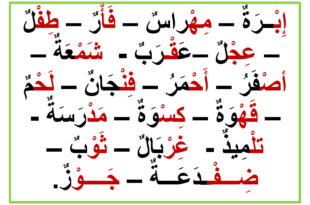 إِبْــرَةٌ – مِهْراسٌ – فَأْرٌ – طِفْلٌ
– عِجْلٌ – عَقْـرَبٌ - شَمْعَةٌ –
أصْفَرُ – أَحْمَرُ – فِنْجَانٌ – لَحْمٌ
– قَهْوَةٌ – كِسْوَةٌ – مَدْرَسَةٌ -
تلْمِيذٌ - غِرْبَالٌ – ثَوْبٌ –
ضِــفْــدَعَــةٌ – جَـــوْزٌ.